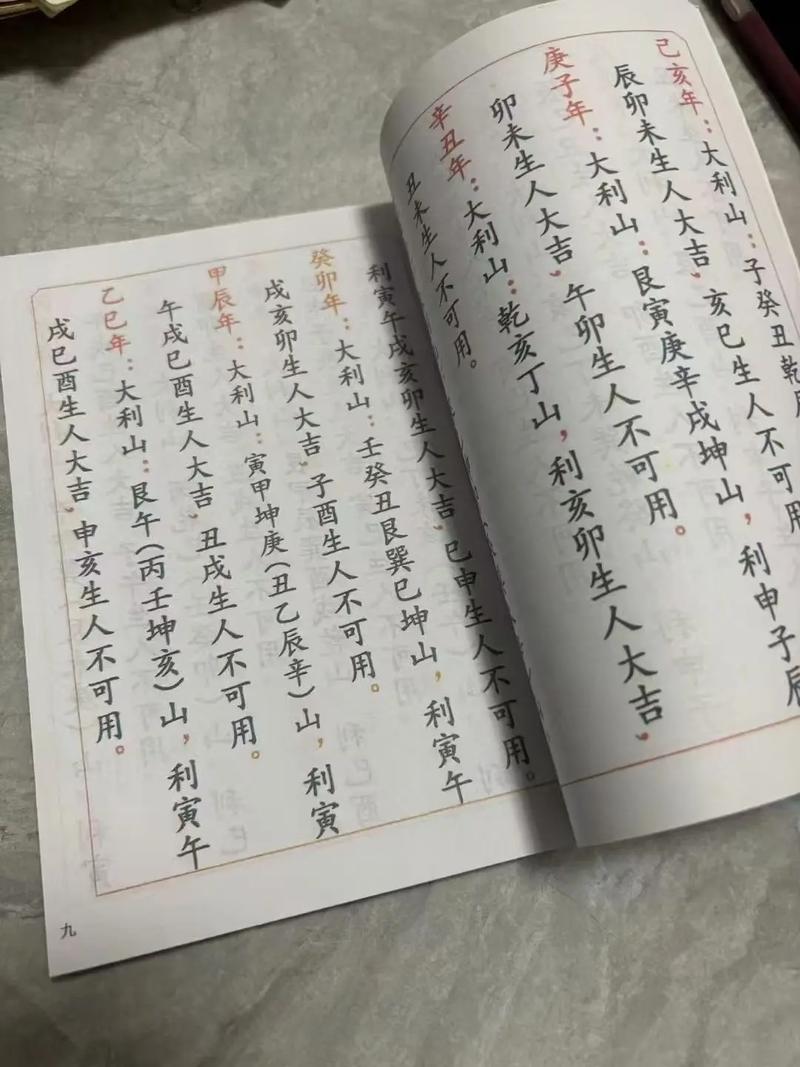 己亥年：大利山：子癸丑乾
辰卯未生人大吉，亥巳生人不可用。
庚子年：大利山：艮寅庚辛戌坤山，利申子辰
卯未生人大吉，午卯生人不可用。
辛丑年：大利山：乾亥丁山，利亥卯生人大吉，
丑未生人不可用。
利寅午戌亥卯生人大吉，巳申生人不可用。
癸卯年：大利山：壬癸丑艮巽巳坤山，利寅午
戌亥卯生人大吉，子酉生人不可用。
甲辰年：大利山：寅甲坤庚（丑乙辰辛）山，利寅
午戌巳酉生人大吉，丑戌生人不可用。
乙巳年：大利山：艮午（丙壬坤亥）山，利寅午
戌巳酉生人大吉，申亥生人不可用。
九